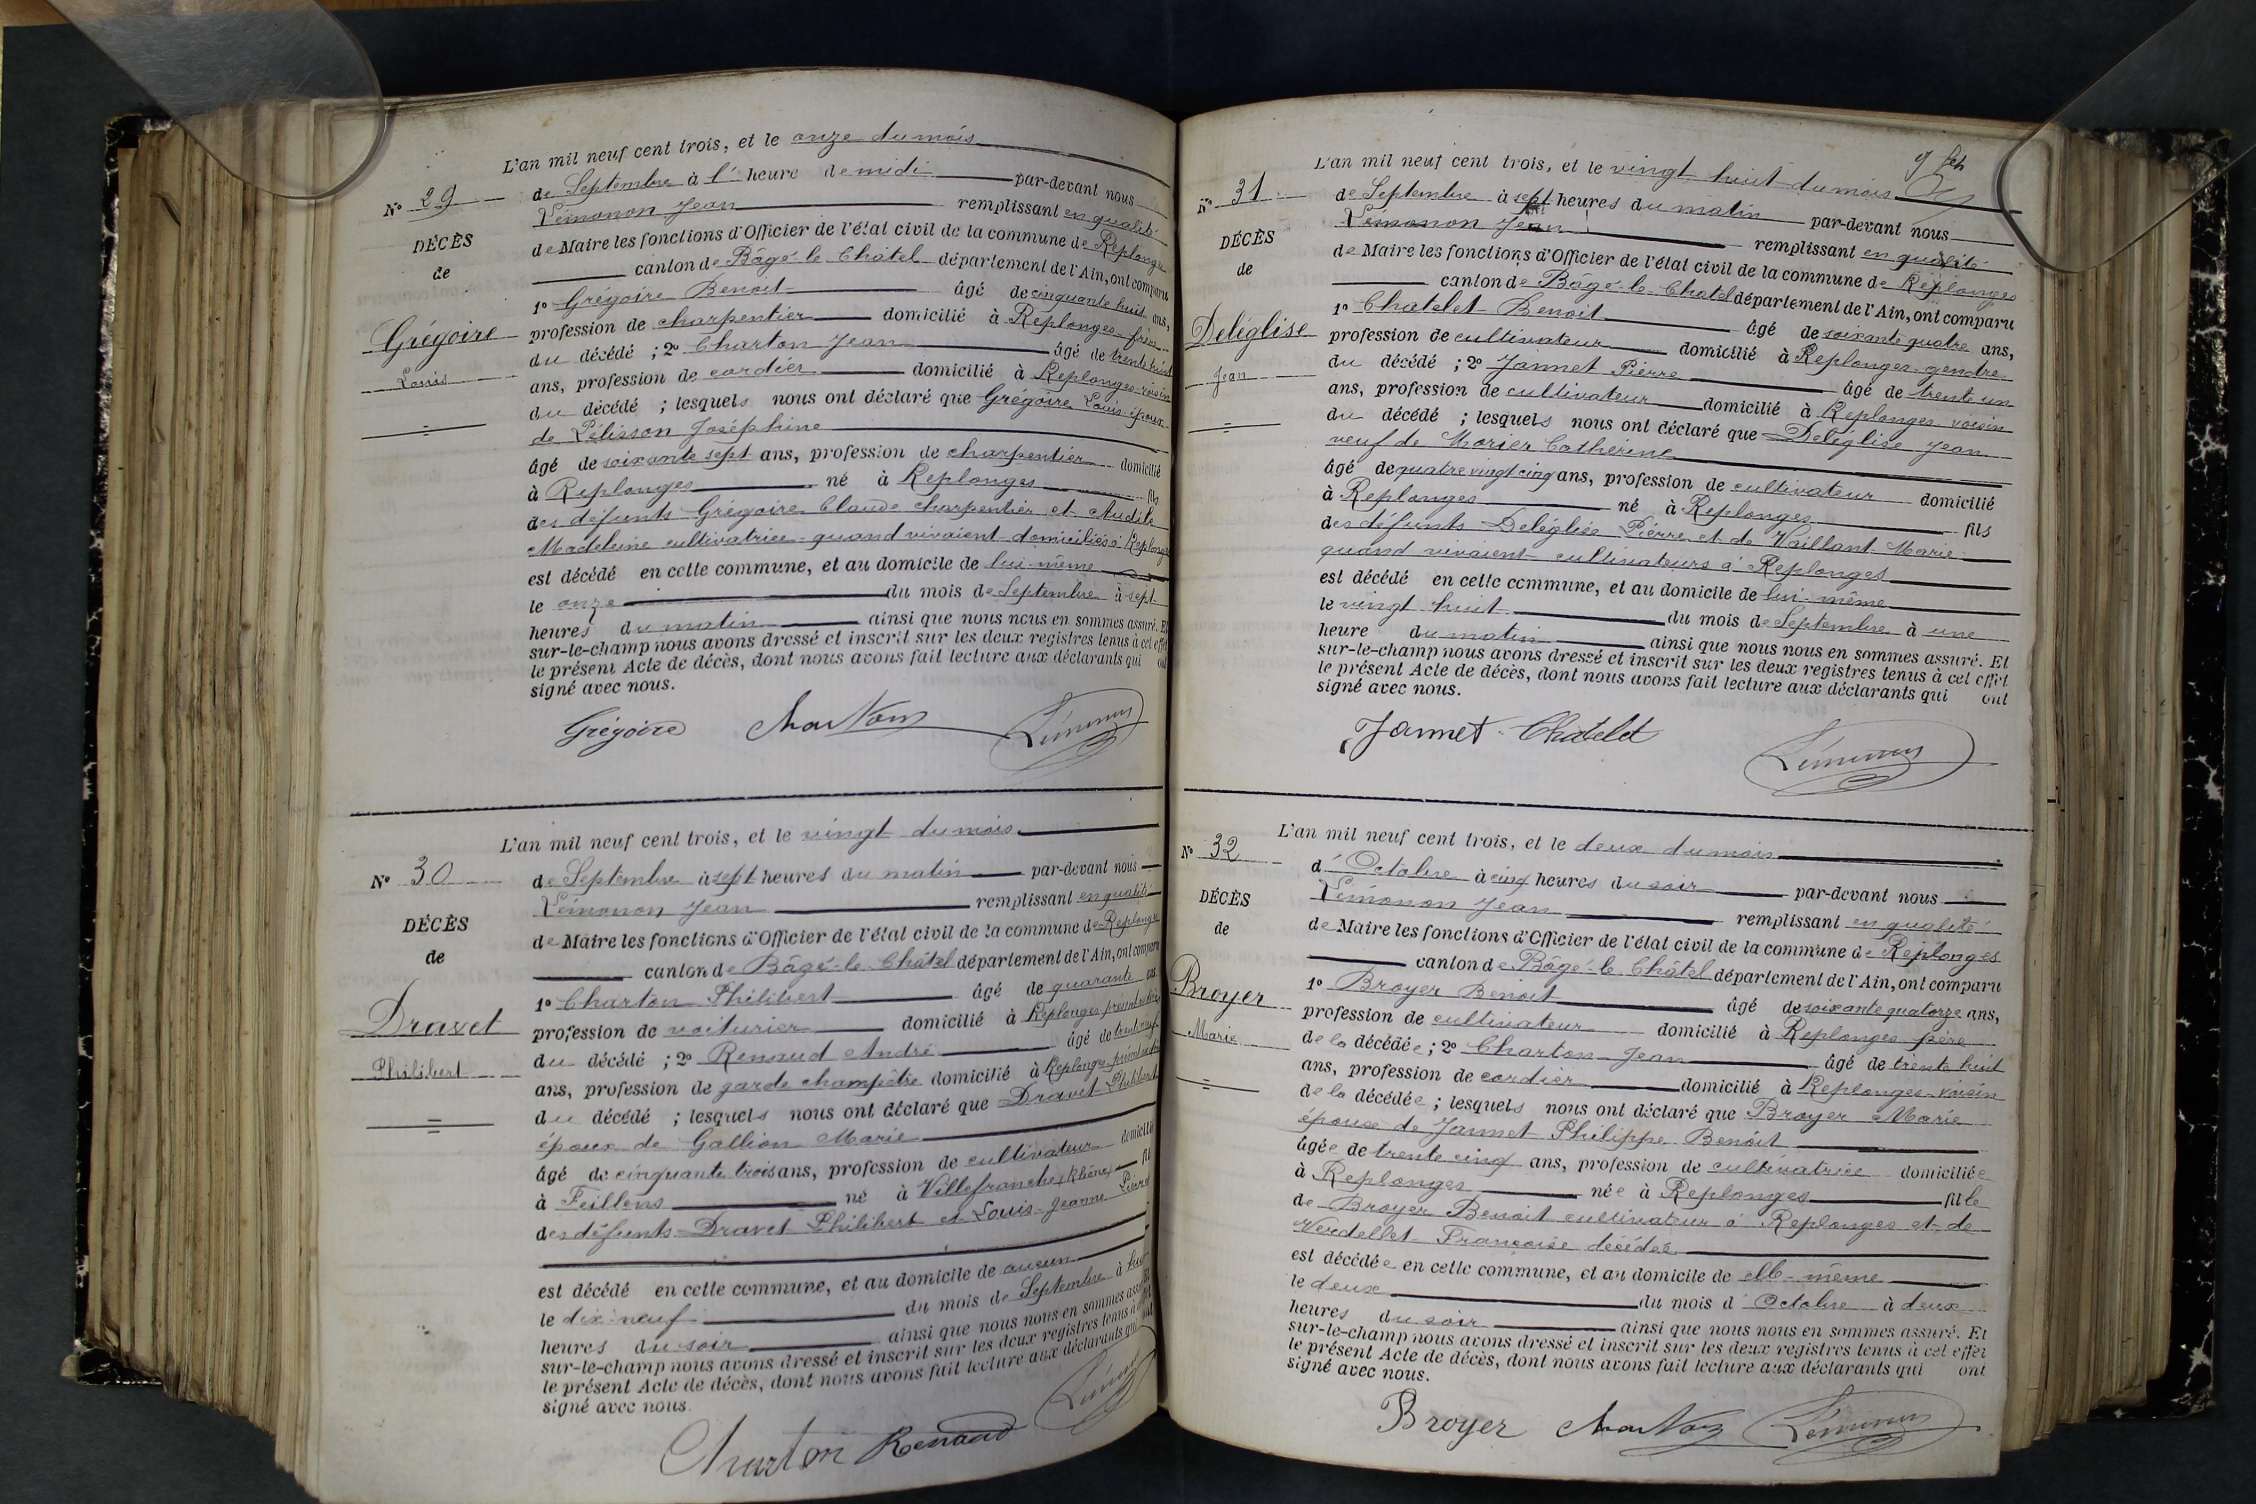 L'an mil neuf cent trois, et le onze du mois
N° 29
de Septembre à l' heure de midi par-devant nous
Lémonon Jean remplissant en qualité
DÉCÈS
de Maire les fonctions d'Officier de l'état civil de la commune de Replonges
de
canton de Bâgé-le-Châtel département de l'Ain, ont comparu
1° Grégoire Benoit âgé de cinquante huit ans,
Grégoire
profession de charpentier domicilié à Replonges frère
Louis
du décédé ; 2° Charton Jean âgé de trente huit
ans, profession de cordier domicilié à Replonges voisin
du décédé ; lesquels nous ont déclaré que Grégoire Louis époux
de Pélisson Joséphine
âgé de soixante sept ans, profession de charpentier domicilié
à Replonges né à Replonges fils
des défunts Grégoire Claude charpentier et
Madeleine cultivatrice quand vivaient domiciliés à Replonges
est décédé en cette commune, et au domicile de lui-même
le onze du mois de Septembre à sept
heures du matin ainsi que nous nous en sommes assuré. Et
sur-le-champ nous avons dressé et inscrit sur les deux registres tenus à cet effet
le présent Acte de décès, dont nous avons fait lecture aux déclarants qui ont
signé avec nous.
Grégoire Charton Lémonon
L'an mil neuf cent trois, et le vingt du mois
N° 30
de Septembre à sept heures du matin par-devant nous
Lémonon Jean remplissant en qualité
DÉCÈS
de Maire les fonctions d'Officier de l'état civil de la commune de Replonges
de
canton de Bâgé-le-Châtel département de l'Ain, ont comparu
1° Charton Philibert âgé de quarante ans
Dravet
profession de voiturier domicilié à Replonges
Philibert
du décédé ; 2° Renaud André âgé de trente neuf
ans, profession de garde champêtre domicilié à Replonges
du décédé ; lesquels nous ont déclaré que Dravet Philibert
époux de Gallion Marie
âgé de cinquante trois ans, profession de cultivateur domicilié
à Feillens né à Villefranche (Rhône) fils
des défunts Dravet Philibert et Louis Jeanne Pierre
est décédé en cette commune, et au domicile de aucun
le dix-neuf du mois de Septembre à huit
heures du soir ainsi que nous nous en sommes assuré. Et
sur-le-champ nous avons dressé et inscrit sur les deux registres tenus à cet effet
le présent Acte de décès, dont nous avons fait lecture aux déclarants qui ont
signé avec nous.
Charton Renaud Lémonon
L'an mil neuf cent trois, et le vingt huit du mois
N° 31
de Septembre à sept heures du matin par-devant nous
Lémonon Jean remplissant en qualité
DÉCÈS
de Maire les fonctions d'Officier de l'état civil de la commune de Replonges
de
canton de Bâgé-le-Châtel département de l'Ain, ont comparu
1° Chatelet Benoit âgé de soixante quatre ans,
Deléglise
profession de cultivateur domicilié à Replonges gendre
Jean
du décédé ; 2° Jannet Pierre âgé de trente un
ans, profession de cultivateur domicilié à Replonges voisin
du décédé ; lesquels nous ont déclaré que Deléglise Jean
veuf de Morier Catherine
âgé de quatre vingt cinq ans, profession de cultivateur domicilié
à Replonges né à Replonges fils
des défunts Deléglise Pierre et de Vaillant Marie
quand vivaient cultivateurs à Replonges
est décédé en cette commune, et au domicile de lui-même
le vingt huit du mois de Septembre à une
heure du matin ainsi que nous nous en sommes assuré. Et
sur-le-champ nous avons dressé et inscrit sur les deux registres tenus à cet effet
le présent Acte de décès, dont nous avons fait lecture aux déclarants qui ont
signé avec nous.
Jannet Chatelet Lémonon
L'an mil neuf cent trois, et le deux du mois
N° 32
d'Octobre à cinq heures du soir par-devant nous
Lémonon Jean remplissant en qualité
DÉCÈS
de Maire les fonctions d'Officier de l'état civil de la commune de Replonges
de
canton de Bâgé-le-Châtel département de l'Ain, ont comparu
1° Broyer Benoit âgé de soixante quatorze ans,
Broyer
profession de cultivateur domicilié à Replonges père
Marie
de la décédée ; 2° Charton Jean âgé de trente huit
ans, profession de cordier domicilié à Replonges voisin
de la décédée ; lesquels nous ont déclaré que Broyer Marie
épouse de Jannet Philippe Benoit
âgée de trente cinq ans, profession de cultivatrice domiciliée
à Replonges née à Replonges fille
de Broyer Benoit cultivateur à Replonges et de
Verdellet Françoise décédée
est décédée en cette commune, et au domicile de elle-même
le deux du mois d'Octobre à deux
heures du soir ainsi que nous nous en sommes assuré. Et
sur-le-champ nous avons dressé et inscrit sur les deux registres tenus à cet effet
le présent Acte de décès, dont nous avons fait lecture aux déclarants qui ont
signé avec nous.
Broyer Charton Lémonon